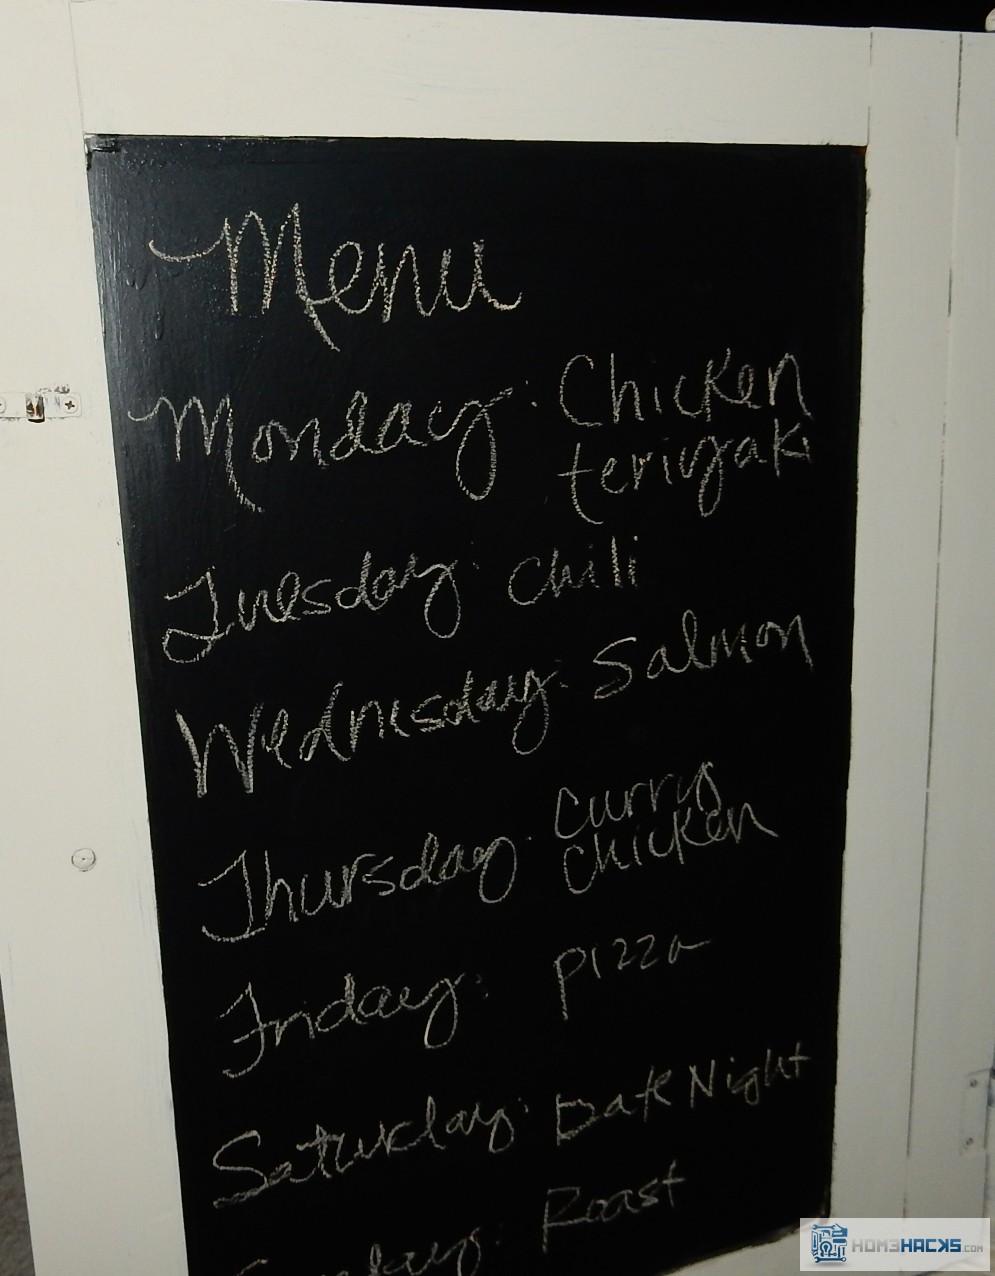 Menu
Monday: Chicken
teriyaki
Tuesday: Chili
Wednesday: Salmon
Thursday: Curry
chicken
Friday: Pizza
Saturday: Date Night
Roast
HOM3HACKS.COM